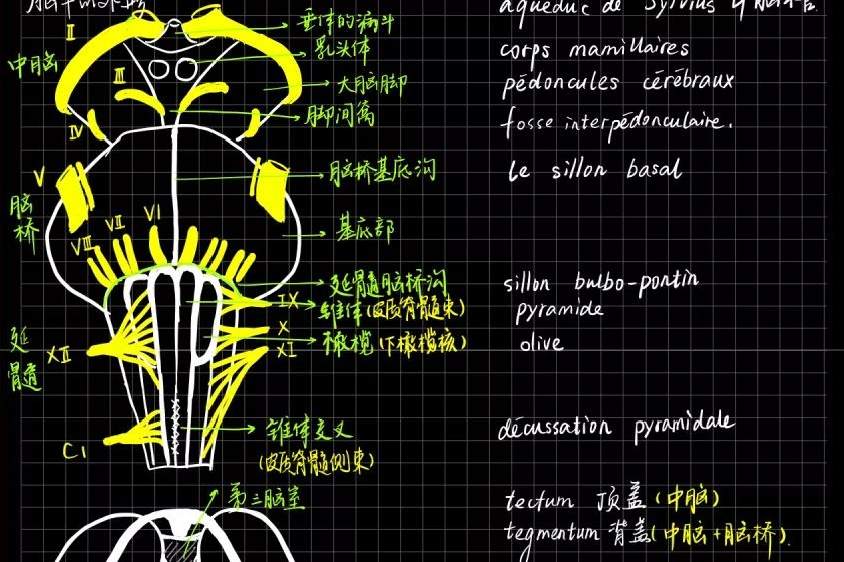 aqueduc de Sylvius
II
垂体的漏斗
乳头体
corps mamillaires
中脑
III
大脑脚
pédoncules cérébraux
IV
脚间窝
fosse interpédonculaire.
V
脑桥基底沟
le sillon basal
脑桥
VI
VII
VIII
基底部
延髓脑桥沟
sillon bulbo-pontin
IX
锥体(皮质脊髓束)
pyramide
X
延髓
XII
XI
橄榄(下橄榄核)
olive
锥体交叉
décussation pyramidale
C1
(皮质脊髓侧束)
第三脑室
tectum 顶盖(中脑)
tegmentum 背盖(中脑+脑桥).